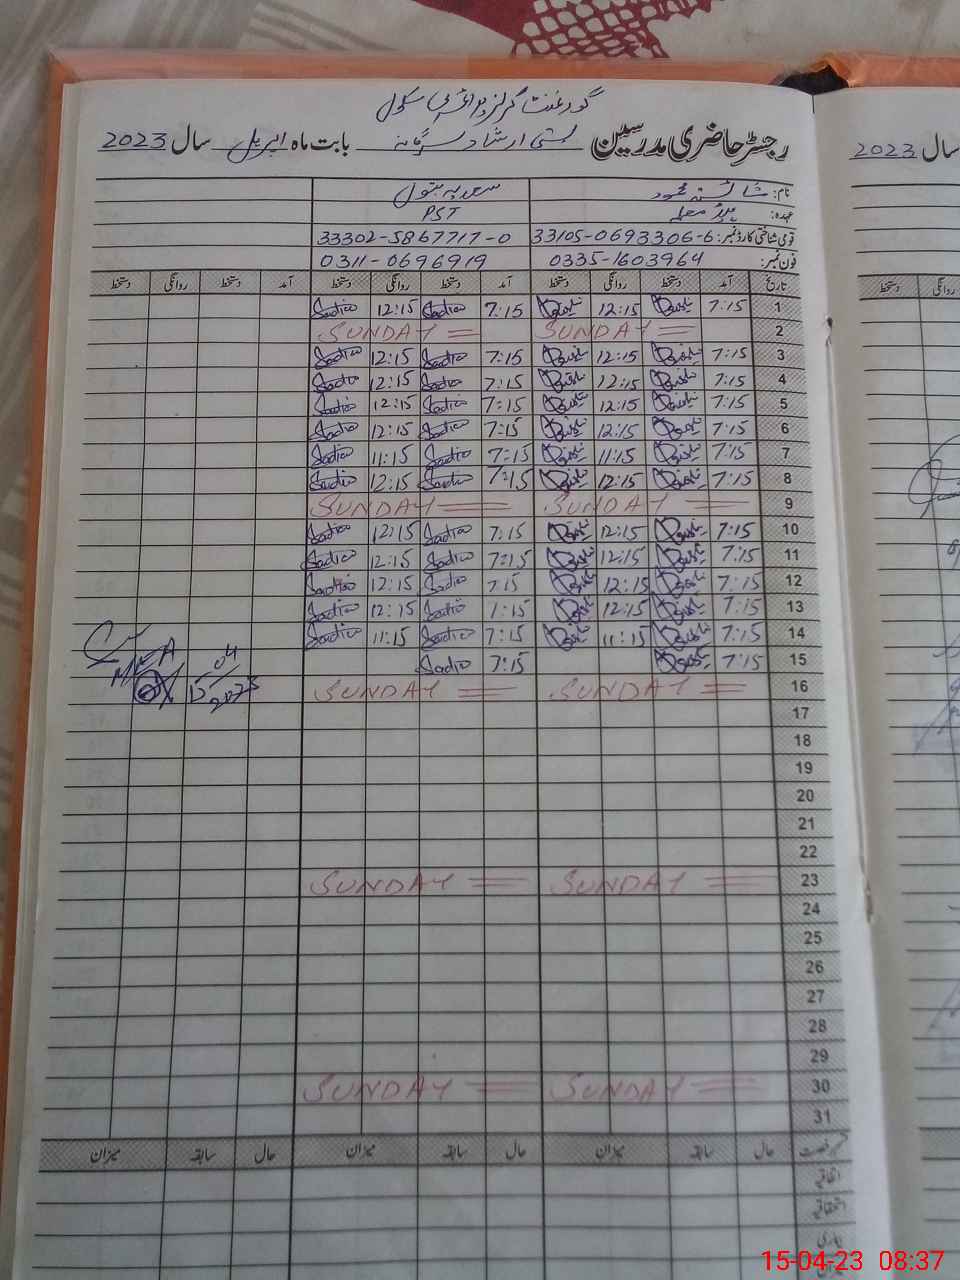 گورنمنٹ گرلز پرائمری سکول
رجسٹر حاضری مدرسین بستی ارشاد بابت ماہ اپریل سال 2023
سال 2023
نام: شائستہ محمود سعدیہ بتول
عہدہ: ہیڈ معلمہ PST
قومی شناختی کارڈ نمبر: 33105-0693306-6 33302-5867717-0
فون نمبر: 0335-1603964 0311-0696919
تاریخ آمد دستخط روانگی دستخط آمد دستخط روانگی دستخط آمد دستخط روانگی دستخط
روانگی دستخط
1 7:15 12:15 7:15 Sadia 12:15 Sadia
2 SUNDAY SUNDAY
3 7:15 12:15 7:15 Sadia 12:15 Sadia
4 7:15 12:15 7:15 Sadia 12:15 Sadia
5 7:15 12:15 7:15 Sadia 12:15 Sadia
6 7:15 12:15 7:15 Sadia 12:15 Sadia
7 7:15 11:15 7:15 Sadia 11:15 Sadia
8 7:15 12:15 7:15 Sadia 12:15 Sadia
9 SUNDAY SUNDAY
10 7:15 12:15 7:15 Sadia 12:15 Sadia
11 7:15 12:15 7:15 Sadia 12:15 Sadia
12 7:15 12:15 7:15 Sadia 12:15 Sadia
13 7:15 12:15 7:15 Sadia 12:15 Sadia
14 7:15 11:15 7:15 Sadia 11:15 Sadia
15 7:15 7:15 Sadia
MEA
15-04-2023
16 SUNDAY SUNDAY
17
18
19
20
21
22
23 SUNDAY SUNDAY
24
25
26
27
28
29
30 SUNDAY SUNDAY
31
قسم رخصت حال سابقہ میزان حال سابقہ میزان حال سابقہ میزان
اتفاقیہ
استحقاقیہ
بیماری
میزان
15-04-23 08:37